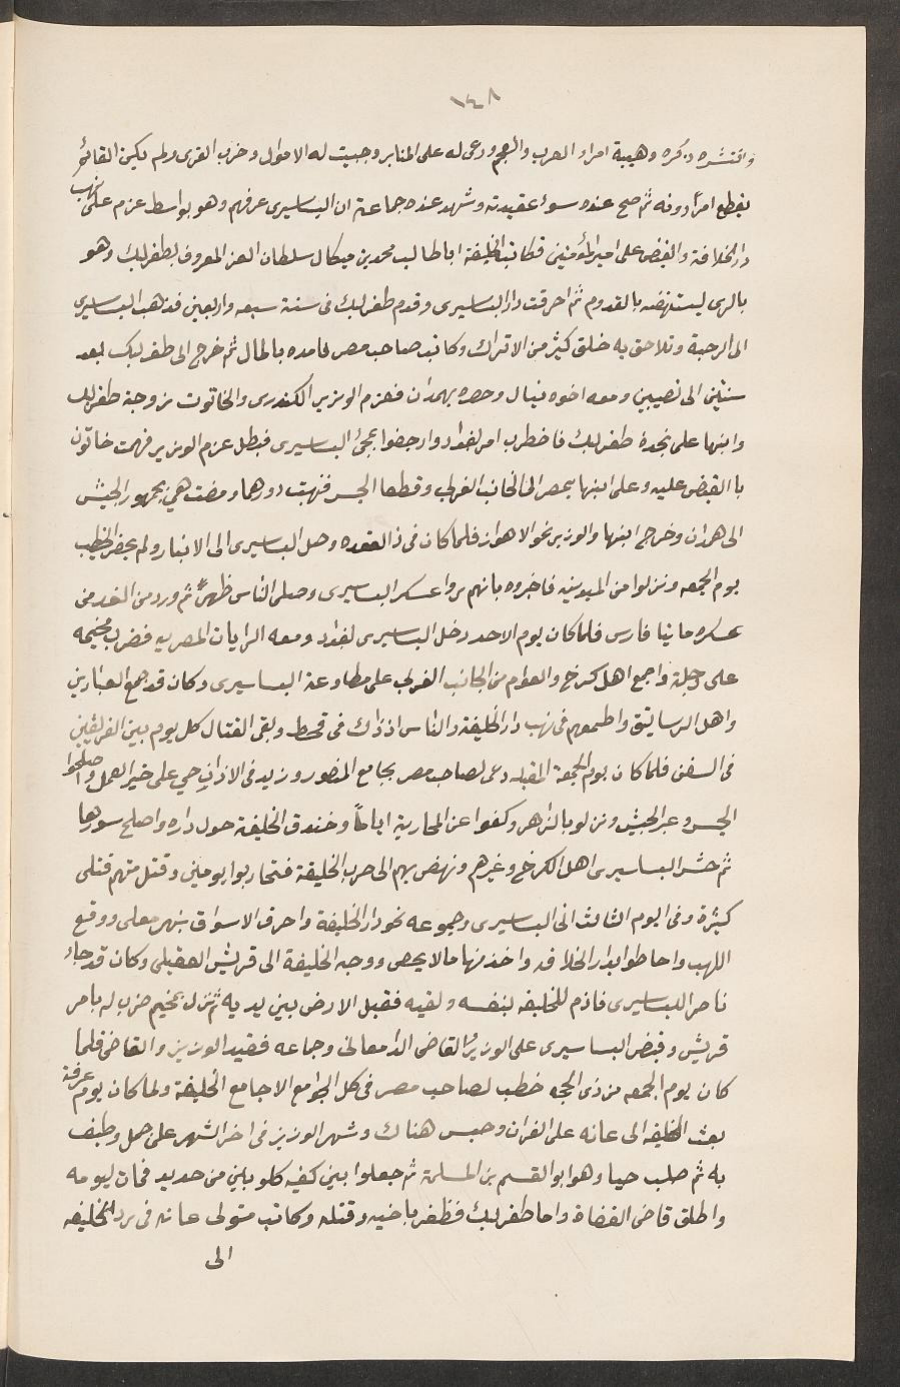 ١٤٨
وانتشر ذكره وهيبة امراء العرب والعجم ودعى له على المنابر وجبيت له الاموال وخرب القرى ولم يكن القائم
يقطع امرًا دونه ثم صح عنده سوء عقيدته وشهد عنده جماعة ان البساسيرى عرفهم وهو بواسط عزم على نهب
دار الخلافة والقبض على امير المؤمنين فكاتب الخليفة ابا طالب محمد بن ميكال سلطان الغز المعروف بطغرلبك وهو
بالرى ليستنهضه بالقدوم ثم احرقت دار البساسيرى وقدم طغرلبك فى سنة سبعه واربعين فذهب البساسيرى
الى الرحبة وتلاحق به خلق كثير من الاتراك وكاتب صاحب مصر فامده بالمال ثم خرج الى طغرلبك بعد
سنتين الى نصيبين ومعه اخوه نيال وحصره بهمدان فعزم الوزير الكندرى والخاتون زوجة طغرلبك
وابنها على نجدة طغرلبك فاضطرب امر بغداد وارجفوا بمجئ البساسيرى فبطل عزم الوزير فهمت خاتون
بالقبض عليه وعلى ابنها بمصر الى الجانب الغربى وقطعا الجسر فنهبت دورهما ومضت هى بجمهور الجيش
الى همدان وخرج ابنها والوزير نحو الاهواز فلما كان فى ذا لقعده وصل البساسيرى الى الانبار ولم يحضر الخطيب
يوم الجمعه ونزلوا من الميدنيه فاخبروه بانهم روا عسكر البساسيرى وصلى الناس ظهرًا ثم ورد من الغد من
عسكره ماتيا فارس فلما كان يوم الاحد دخل البساسيرى بغداد ومعه الرايات المصريه فضرب مخيمه
على دجلة واجمع اهل كرخ والعوام من الجانب الغربى على مطاوعة البساسيرى وكان قد جمع العيارين
واهل الرساتيق واطمعهم فى نهب دار الخليفة والناس اذ ذاك فى قحط وبقى القتال كل يوم بين الفريقين
فى السفن فلما كان يوم الجمعة المقبله دعى لصاحب مصر بجامع المنصور وزيد فى الاذان حي على خير العمل واصلحوا
الجسر وعبر الجيش ونزلوا بالزاهر وكفوا عن المحاربة اياماً وخندق الخليفة حول داره واصلح سورها
ثم حشر البساسيرى اهل الكرخ وغيرهم ونهض بهم الى حرب الخليفة فتحاربوا يومين وقتل منهم قتلى
كثيرة وفى اليوم الثالث اتى البساسيرى وجموعه نحو دار الخليفة واحرق الاسواق بنهر معلى ووقع
اللهب واحاطوا بدار الخلافه واخذ منها مالا يحصى ووجه الخليفة الى قريش العقيلى وكان قد جاء
ناصر البساسيرى فاذم للخليفه بنفسه ولقيه فقبل الارض بين يديه ثم نزل بمخيم ضرب له بامر
قريش وقبض البساسيرى على الوزير والقاضى الدامغانى وجماعه فقيد الوزير والقاضى فلما
كان يوم الجمعه من ذى الحجه خطب لصاحب مصر فى كل الجوامع الا جامع الخليفة ولما كان يوم عرفة
بعث الخليفه الى عانه على الفران وحبس هناك وشهر الوزير فى اخر الشهر على جمل وطيف
به ثم صلب حيا وهو ابو القسم بن المسلمة ثم جعلوا بين كفيه كلوبلين من حديد فمات ليومه
واطلق قاضى القضاة واما طغرلبك فظفر باخيه وقتله وكاتب متولى عانه فى رد الخليفه
الى